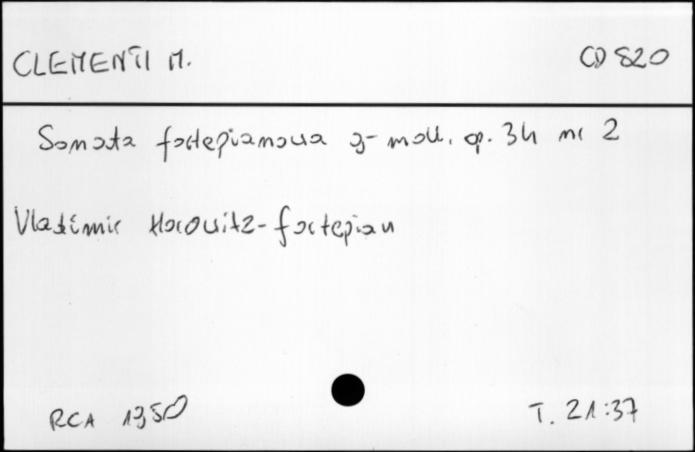 CLEMENTI M.
CD 820
Sonata fortepianowa g-moll. op. 34 nr 2
Vladimir Horowitz-fortepian
RCA 1950
T. 21:37